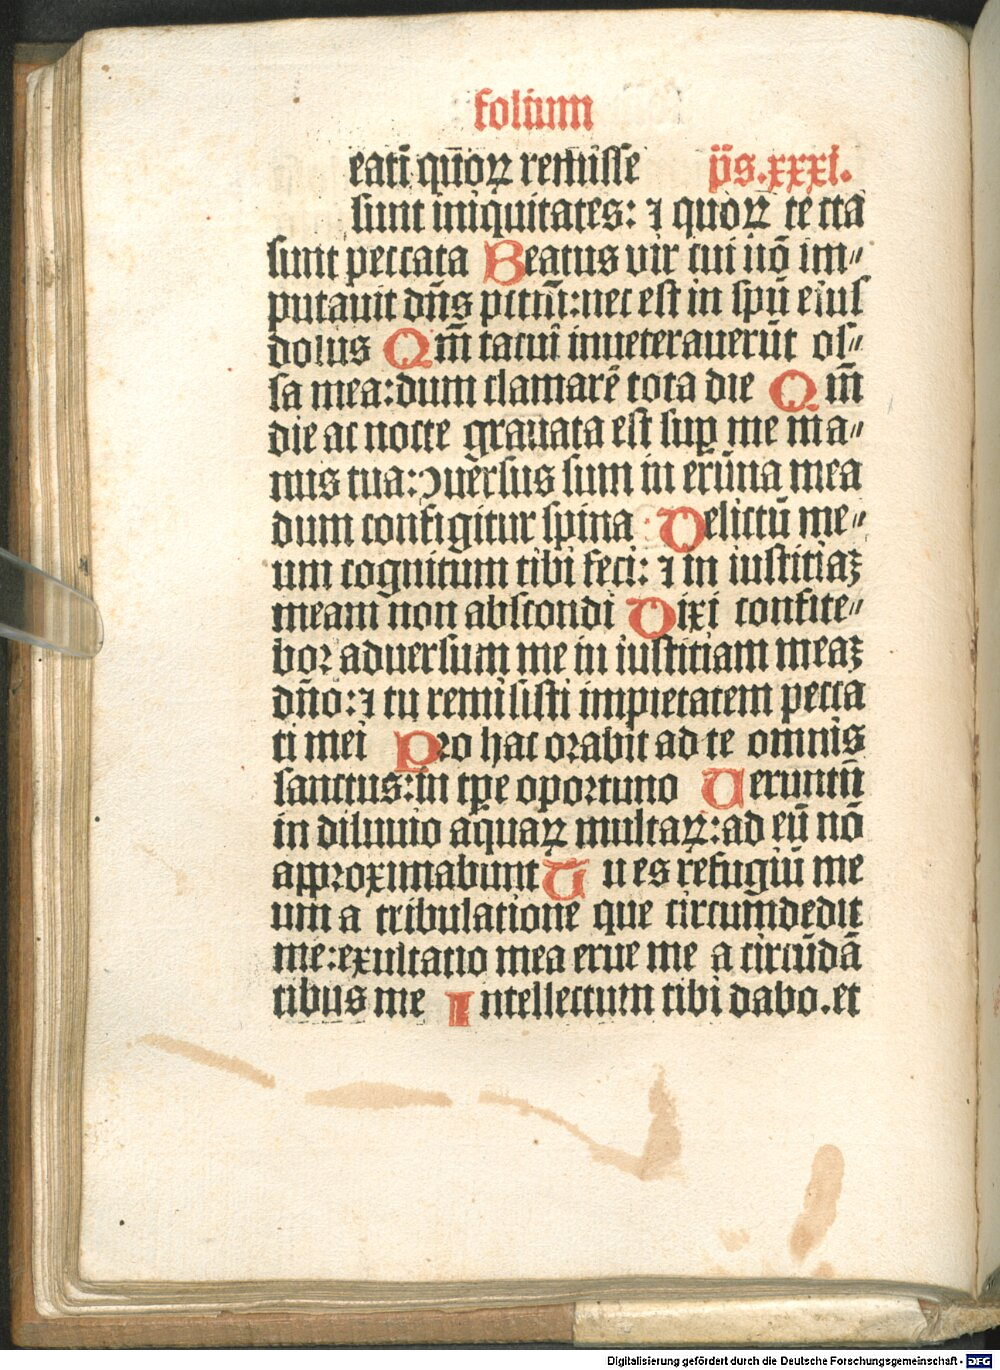 folium
eati quoꝝ remisse p̄s.xxxi.
sunt iniquitates: ⁊ quoꝝ te cta
sunt peccata Beatus vir cui nō im⸗
putauit dn̄s pctm̄: nec est in spū eius
dolus Qm̄ tacui inueterauerūt os⸗
sa mea: dum clamarē tota die Qm̄
die ac nocte grauata est suꝑ me ma⸗
nus tua: ↄuersus sum in erūna mea
dum configitur spina Delictū me⸗
um cognitum tibi feci: ⁊ in iusticiaꝫ
meam non abscondi Dixi confite⸗
bor aduersum me in iusticiam meaꝫ
dn̄o: ⁊ tu remisisti impietatem pecca
ti mei Pro hac orabit ad te omnis
sanctus: in tꝑe oportuno Ueruntn̄
in diluuio aquaꝝ multaꝝ: ad eū nō
approximabunt Tu es refugiū me
um a tribulatione que circumdedit
me: exultatio mea erue me a circūdā
tibus me Intellectum tibi dabo. et
Digitalisierung gefördert durch die Deutsche Forschungsgemeinschaft - DFG